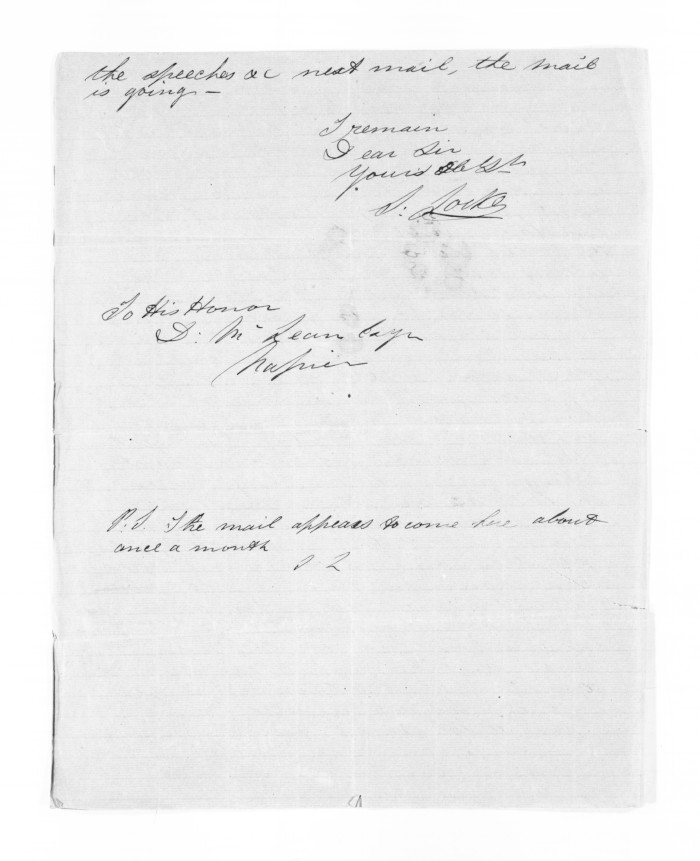 the speeches &c next mail, the mail
is going —
I remain
Dear Sir
Yours
S: Locke
To His Honor
D: McLean Esqr
Napier
P.S. The mail appears to come here about
once a month
S L